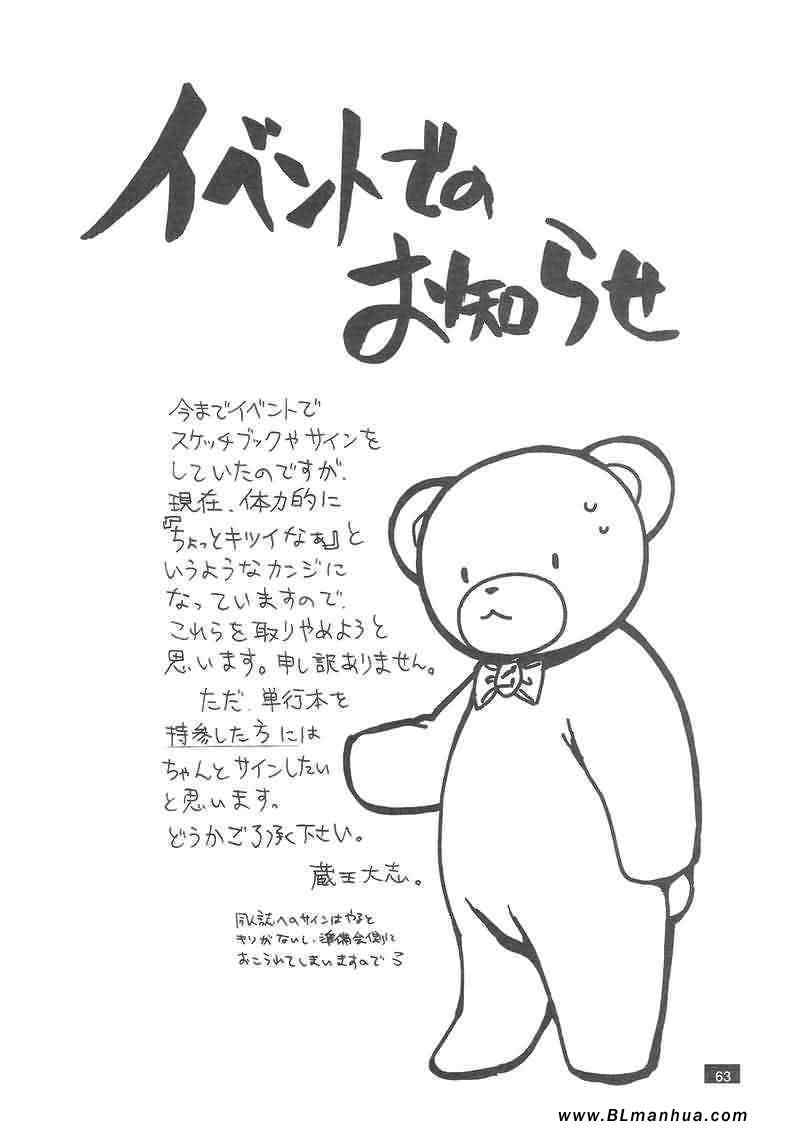 イベントでの
お知らせ
今までイベントで
スケッチブックやサインを
していたのですが、
現在、体力的に
『ちょっとキツイなぁ』と
いうようなカンジに
なっていますので、
これらを取りやめようと
思います。申し訳ありません。
ただ、単行本を
持参した方には
ちゃんとサインしたい
と思います。
どうかご了承下さい。
蔵王大志。
同人誌へのサインはやると
きりがないし、準備会側に
おこられてしまいますので
63
www.BLmanhua.com